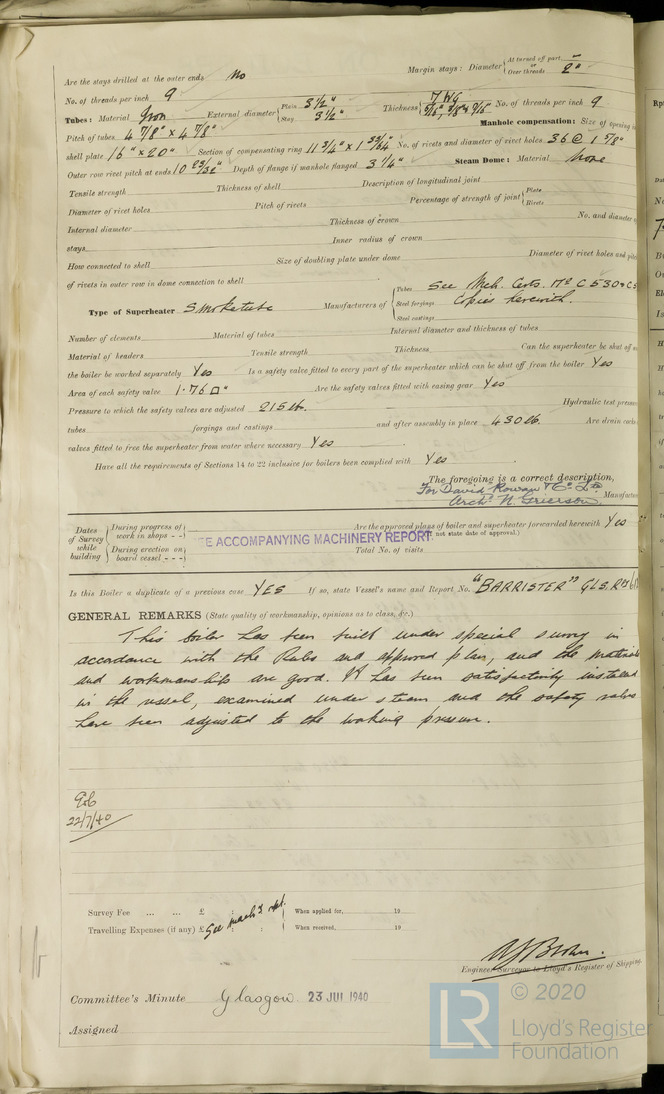 Are the stays drilled at the outer ends No Margin stays: Diameter { At turned off part, or Over threads 2"
No. of threads per inch 9
Tubes: Material Iron External diameter { Plain 3 1/2" Stay 3 1/2" Thickness { 7 WG 5/16", 3/8" & 7/16" No. of threads per inch 9
Pitch of tubes 4 7/8" × 4 7/8" Manhole compensation: Size of opening in
shell plate 16" × 20" Section of compensating ring 11 3/4" × 1 33/64" No. of rivets and diameter of rivet holes 36 @ 1 5/8"
Outer row rivet pitch at ends 10 23/32" Depth of flange if manhole flanged 3 1/4" Steam Dome: Material None
Tensile strength Thickness of shell Description of longitudinal joint
Diameter of rivet holes Pitch of rivets Percentage of strength of joint { Plate Rivets
Internal diameter Thickness of crown No. and diameter
stays Inner radius of crown
How connected to shell Size of doubling plate under dome Diameter of rivet holes and pitch
of rivets in outer row in dome connection to shell
Type of Superheater Smoketube Manufacturers of { Tubes See Mch. Certs. No C 530 & C5
Steel forgings Copies herewith.
Steel castings
Number of elements Material of tubes Internal diameter and thickness of tubes
Material of headers Tensile strength Thickness Can the superheater be shut off
the boiler be worked separately Yes Is a safety valve fitted to every part of the superheater which can be shut off from the boiler Yes
Area of each safety valve 1.76 □" Are the safety valves fitted with easing gear Yes
Pressure to which the safety valves are adjusted 215 lb. Hydraulic test pressure
tubes forgings and castings and after assembly in place 430 lb. Are drain cocks
valves fitted to free the superheater from water where necessary Yes
Have all the requirements of Sections 14 to 22 inclusive for boilers been complied with Yes
The foregoing is a correct description,
For David Rowan & Co Ltd
Archd N. Grierson Manufactu
Dates of Survey while building { During progress of work in shops - - During erection on board vessel - - -
E ACCOMPANYING MACHINERY REPORT
Are the approved plans of boiler and superheater forwarded herewith Yes
not state date of approval.)
Total No. of visits
Is this Boiler a duplicate of a previous case YES If so, state Vessel's name and Report No. "BARRISTER" GLS. R
GENERAL REMARKS (State quality of workmanship, opinions as to class, &c.)
This boiler has been built under special survey in
accordance with the Rules and approved plan, and the materials
and workmanship are good. It has been satisfactorily installed
in the vessel, examined under steam and the safety valves
have been adjusted to the working pressure.
22/7/40
Survey Fee ... ... £ : : When applied for, 19
Travelling Expenses (if any) £ : : When received, 19
See mach'y rpt.
Engineer Surveyor to Lloyd's Register of Shipping
Committee's Minute Glasgow 23 JUL 1940
Assigned
LR
© 2020
Lloyd's Register
Foundation